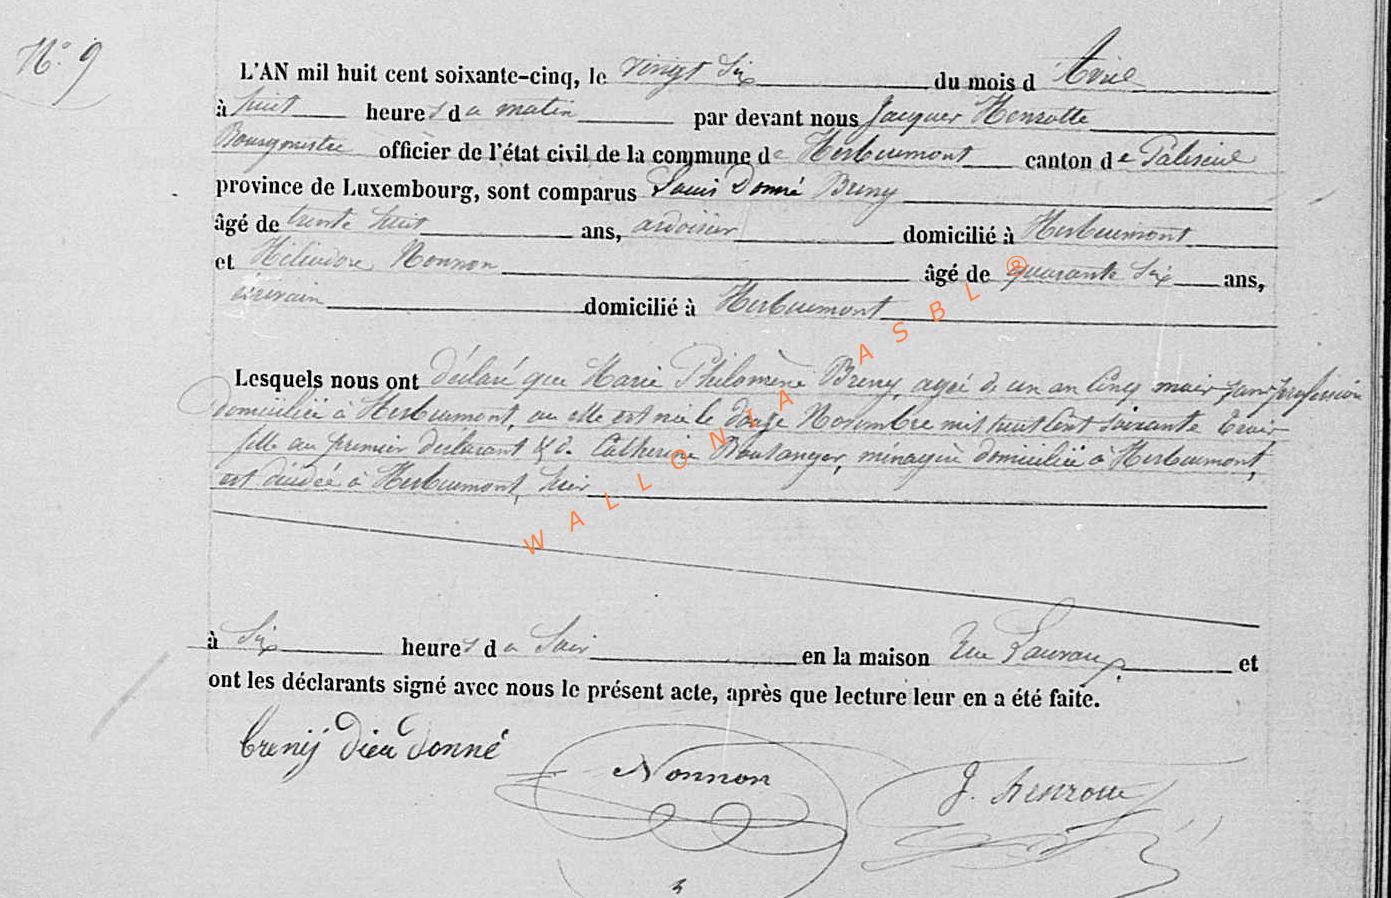 N.o 9
L'AN mil huit cent soixante-cinq, le vingt Six du mois d'Avril
à huit heures du matin par devant nous Jacques Henrotte
Bourgmestre officier de l'état civil de la commune de Herbeumont canton de Paliseul
province de Luxembourg, sont comparus Donné Breny
âgé de trente huit ans, ardoisier domicilié à Herbeumont
et Héliodore Nonnon âgé de quarante Six ans,
écrivain domicilié à Herbeumont
Lesquels nous ont déclaré que Marie Philomène Breny, agée de un an Cinq mois, sans profession
domiciliée à Herbeumont, ou elle est née le douze Novembre mil huit Cent soixante Trois
fille au premier déclarant & de Catherine Boulanger, ménagère domiciliée à Herbeumont,
est décédée à Herbeumont, hier
à Six heures du Soir en la maison Rue et
ont les déclarants signé avec nous le présent acte, après que lecture leur en a été faite.
brenij dieu donné
Nonnon
J. Henrotte
WALLONIA ASBL ®